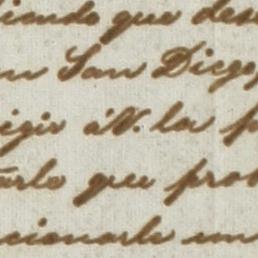 iendo que des
n San Diego,
egir á V. la p
arlo que pro
cionarle un